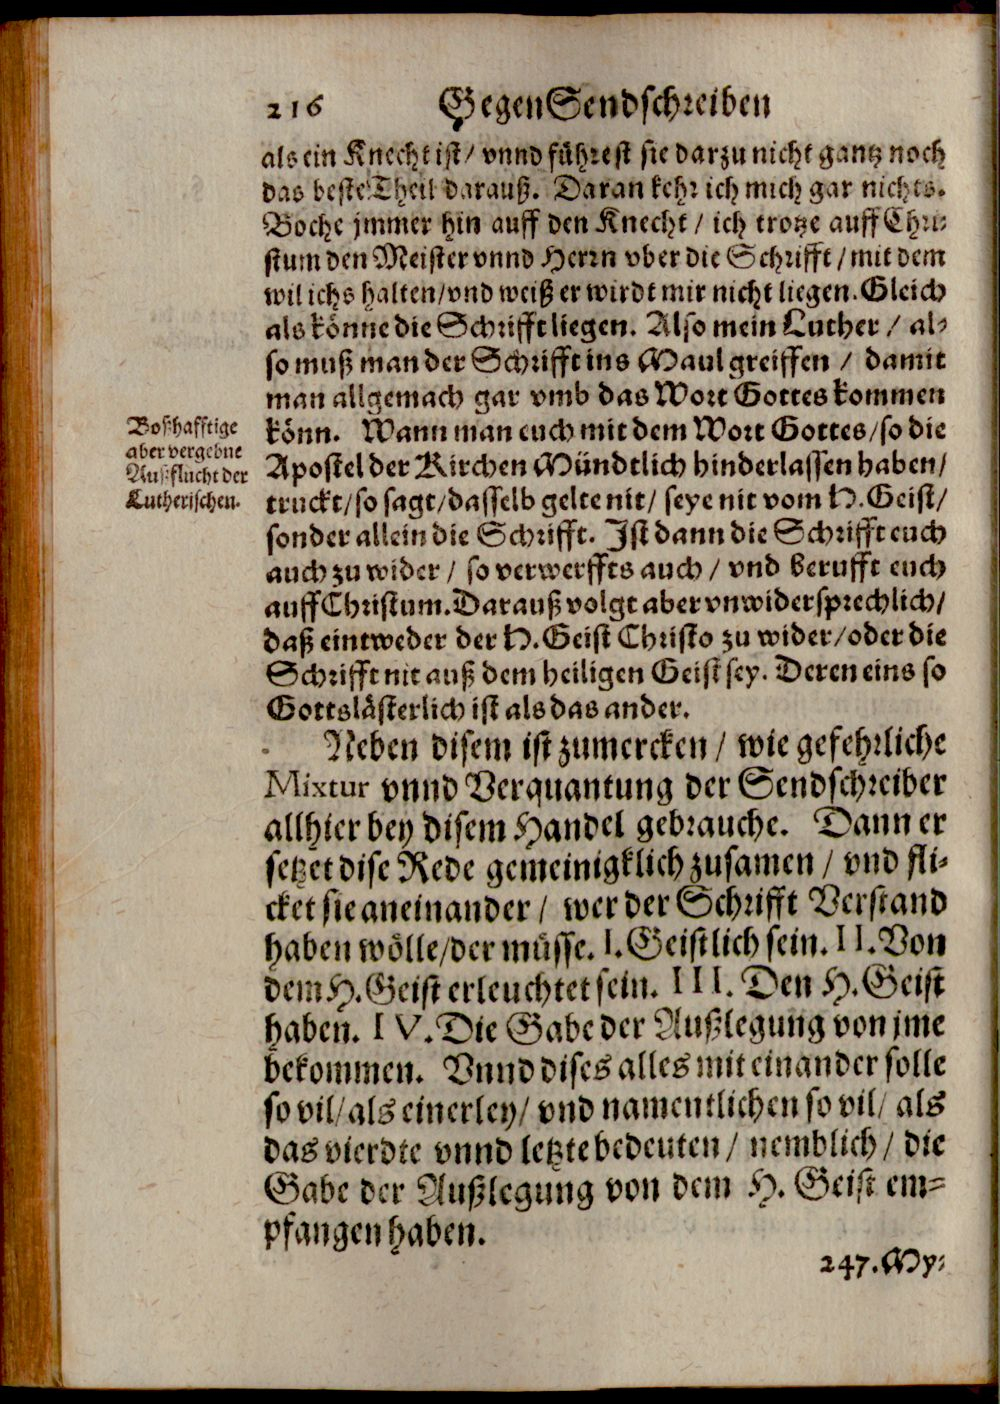 216 GegenSendschreiben
als ein Knecht ist/ vnnd führest sie darzu nicht gantz noch
das beste Theil darauß. Daran kehr ich mich gar nichts.
Boche jmmer hin auff den Knecht / ich trotze auff Chri-
stum den Meister vnnd Herrn vber die Schrifft / mit dem
wil ichs halten/vnd weiß er wirdt mir nicht liegen. Gleich
als könne die Schrifft liegen. Also mein Luther / al-
so muß man der Schrifft ins Maul greiffen / damit
man allgemach gar vmb das Wort Gottes kommen
könn. Wann man euch mit dem Wort Gottes/so die
Apostel der Kirchen Mündtlich hinderlassen haben/
truckt/so sagt/dasselb gelte nit/ seye nit vom H.Geist/
sonder allein die Schrifft. Ist dann die Schrifft euch
auch zu wider / so verwerffts auch / vnd berufft euch
auff Christum.Darauß volgt aber vnwidersprechlich/
daß eintweder der H.Geist Christo zu wider/oder die
Schrifft nit auß dem heiligen Geist sey. Deren eins so
Gottslästerlich ist als das ander.
Boßhafftige
aber vergebne
Außflucht der
Lutherischen.
Neben disem ist zumercken / wie gefehrliche
Mixtur vnnd Verquantung der Sendschreiber
allhier bey disem Handel gebrauche. Dann er
setzet dise Rede gemeinigklich zusamen / vnd fli-
cket sie aneinander / wer der Schrifft Verstand
haben wölle/der müsse. I. Geistlich sein. II. Von
dem H.Geist erleuchtet sein. III. Den H.Geist
haben. IV. Die Gabe der Außlegung von jme
bekommen. Vnnd dises alles mit einander solle
so vil/als einerley/ vnd namentlichen so vil/ als
das vierdte vnnd letzte bedeuten / nemblich / die
Gabe der Außlegung von dem H. Geist em-
pfangen haben.
247. My-